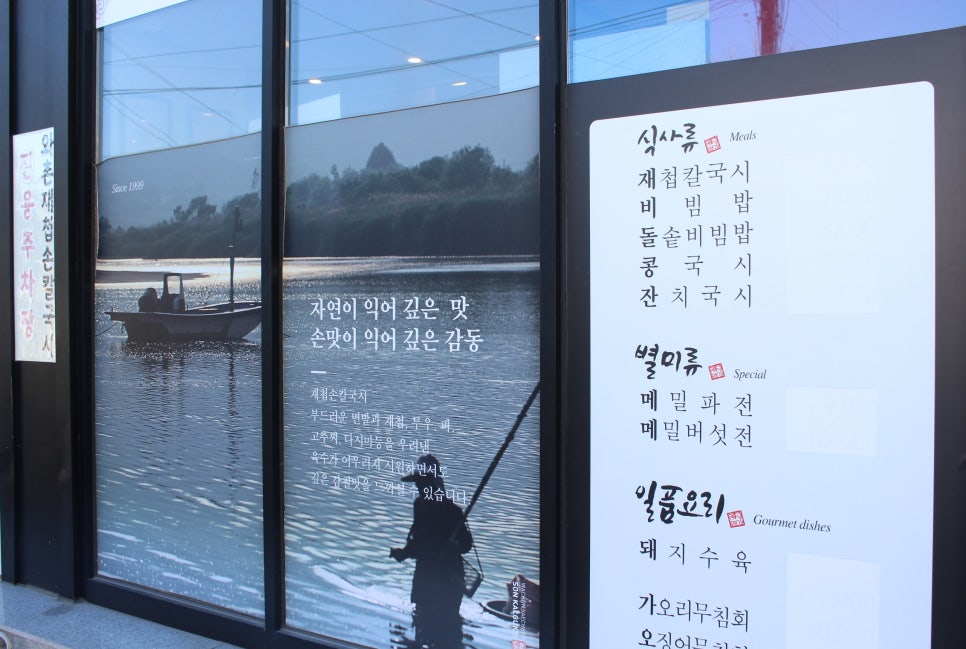 와촌재첩손칼국시
전용주차장
Since 1999
자연이 익어 깊은 맛
손맛이 익어 깊은 감동
재첩손칼국시
부드러운 면발과 재첩, 무우, 파,
고추씨, 다시마등을 우려낸
육수가 어우러져 시원하면서도
깊은 감칠맛을 느껴실 수 있습니다.
SON KALGUK
식사류 Meals
재첩칼국시
비빔밥
돌솥비빔밥
콩국시
잔치국시
별미류 Special
메밀파전
메밀버섯전
일품요리 Gourmet dishes
돼지수육
가오리무침회
오징어무침회